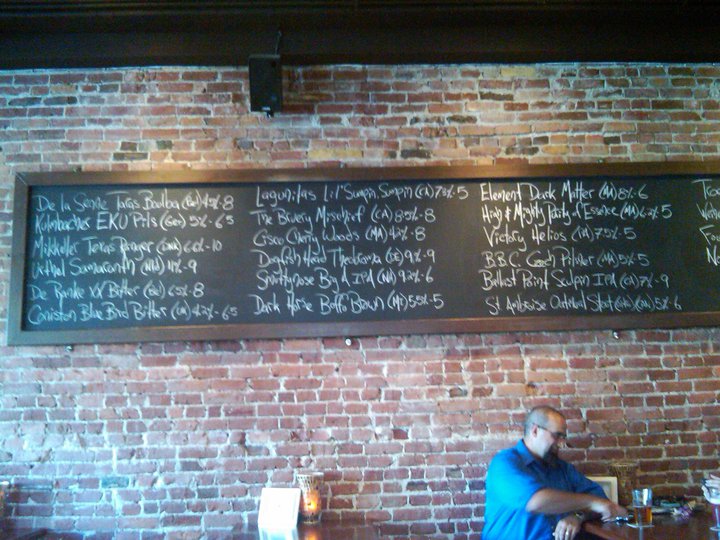 De la Senne Taras Boulba (Bel) 4.5%-8
Kulmbacher EKU Pils (Ger) 5%-6.5
Mikkeller Texas Ranger 6.6%-10
Uerthal Sumaranth 11%-9
De Ranke XX Bitter 6.5%-8
Coniston Blue Bird Bitter 4.2%-6.5
Lagunitas Lil' Sumpin Sumpin (CA) 7.3%-5
The Bruery Mischief (CA) 8.5%-8
Cisco Cherry Woods (MA) 4.2%-8
Dogfish Head Theobroma (DE) 9%-9
Smuttynose Big A IPA (NH) 9.2%-6
Dark Horse Boffo Brown (MI) 5.5%-5
Element Dark Matter (MA) 8%-6
High & Mighty Purity of Essence (MA) 6.2%-5
Victory Helios (PA) 7.5%-5
B.B.C. Czech Pilsner (MA) 5%-5
Ballast Point Sculpin IPA (CA) 7%-9
St Ambroise Oatmeal Stout 5%-6